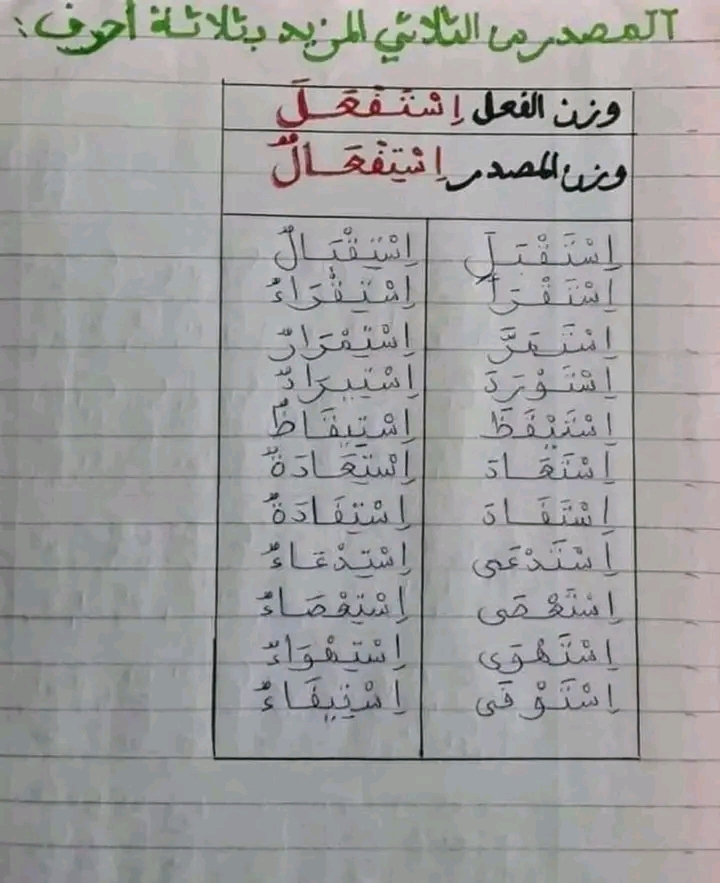 المصدر من الثلاثي المزيد بثلاثة أحرف:
وزن الفعل اِسْتَفْعَلَ
وزن المصدر اِسْتِفْعَالٌ
اِسْتَقْبَلَ اِسْتِقْبَالٌ
اِسْتَقْرَأَ اِسْتِقْرَاءٌ
اِسْتَمَرَّ اِسْتِمْرَارٌ
اِسْتَوْرَدَ اِسْتِيرَادٌ
اِسْتَيْقَظَ اِسْتِيقَاظٌ
اِسْتَعَادَ اِسْتِعَادَةٌ
اِسْتَفَادَ اِسْتِفَادَةٌ
اِسْتَدْعَى اِسْتِدْعَاءٌ
اِسْتَعْصَى اِسْتِعْصَاءٌ
اِسْتَهْوَى اِسْتِهْوَاءٌ
اِسْتَوْفَى اِسْتِيفَاءٌ